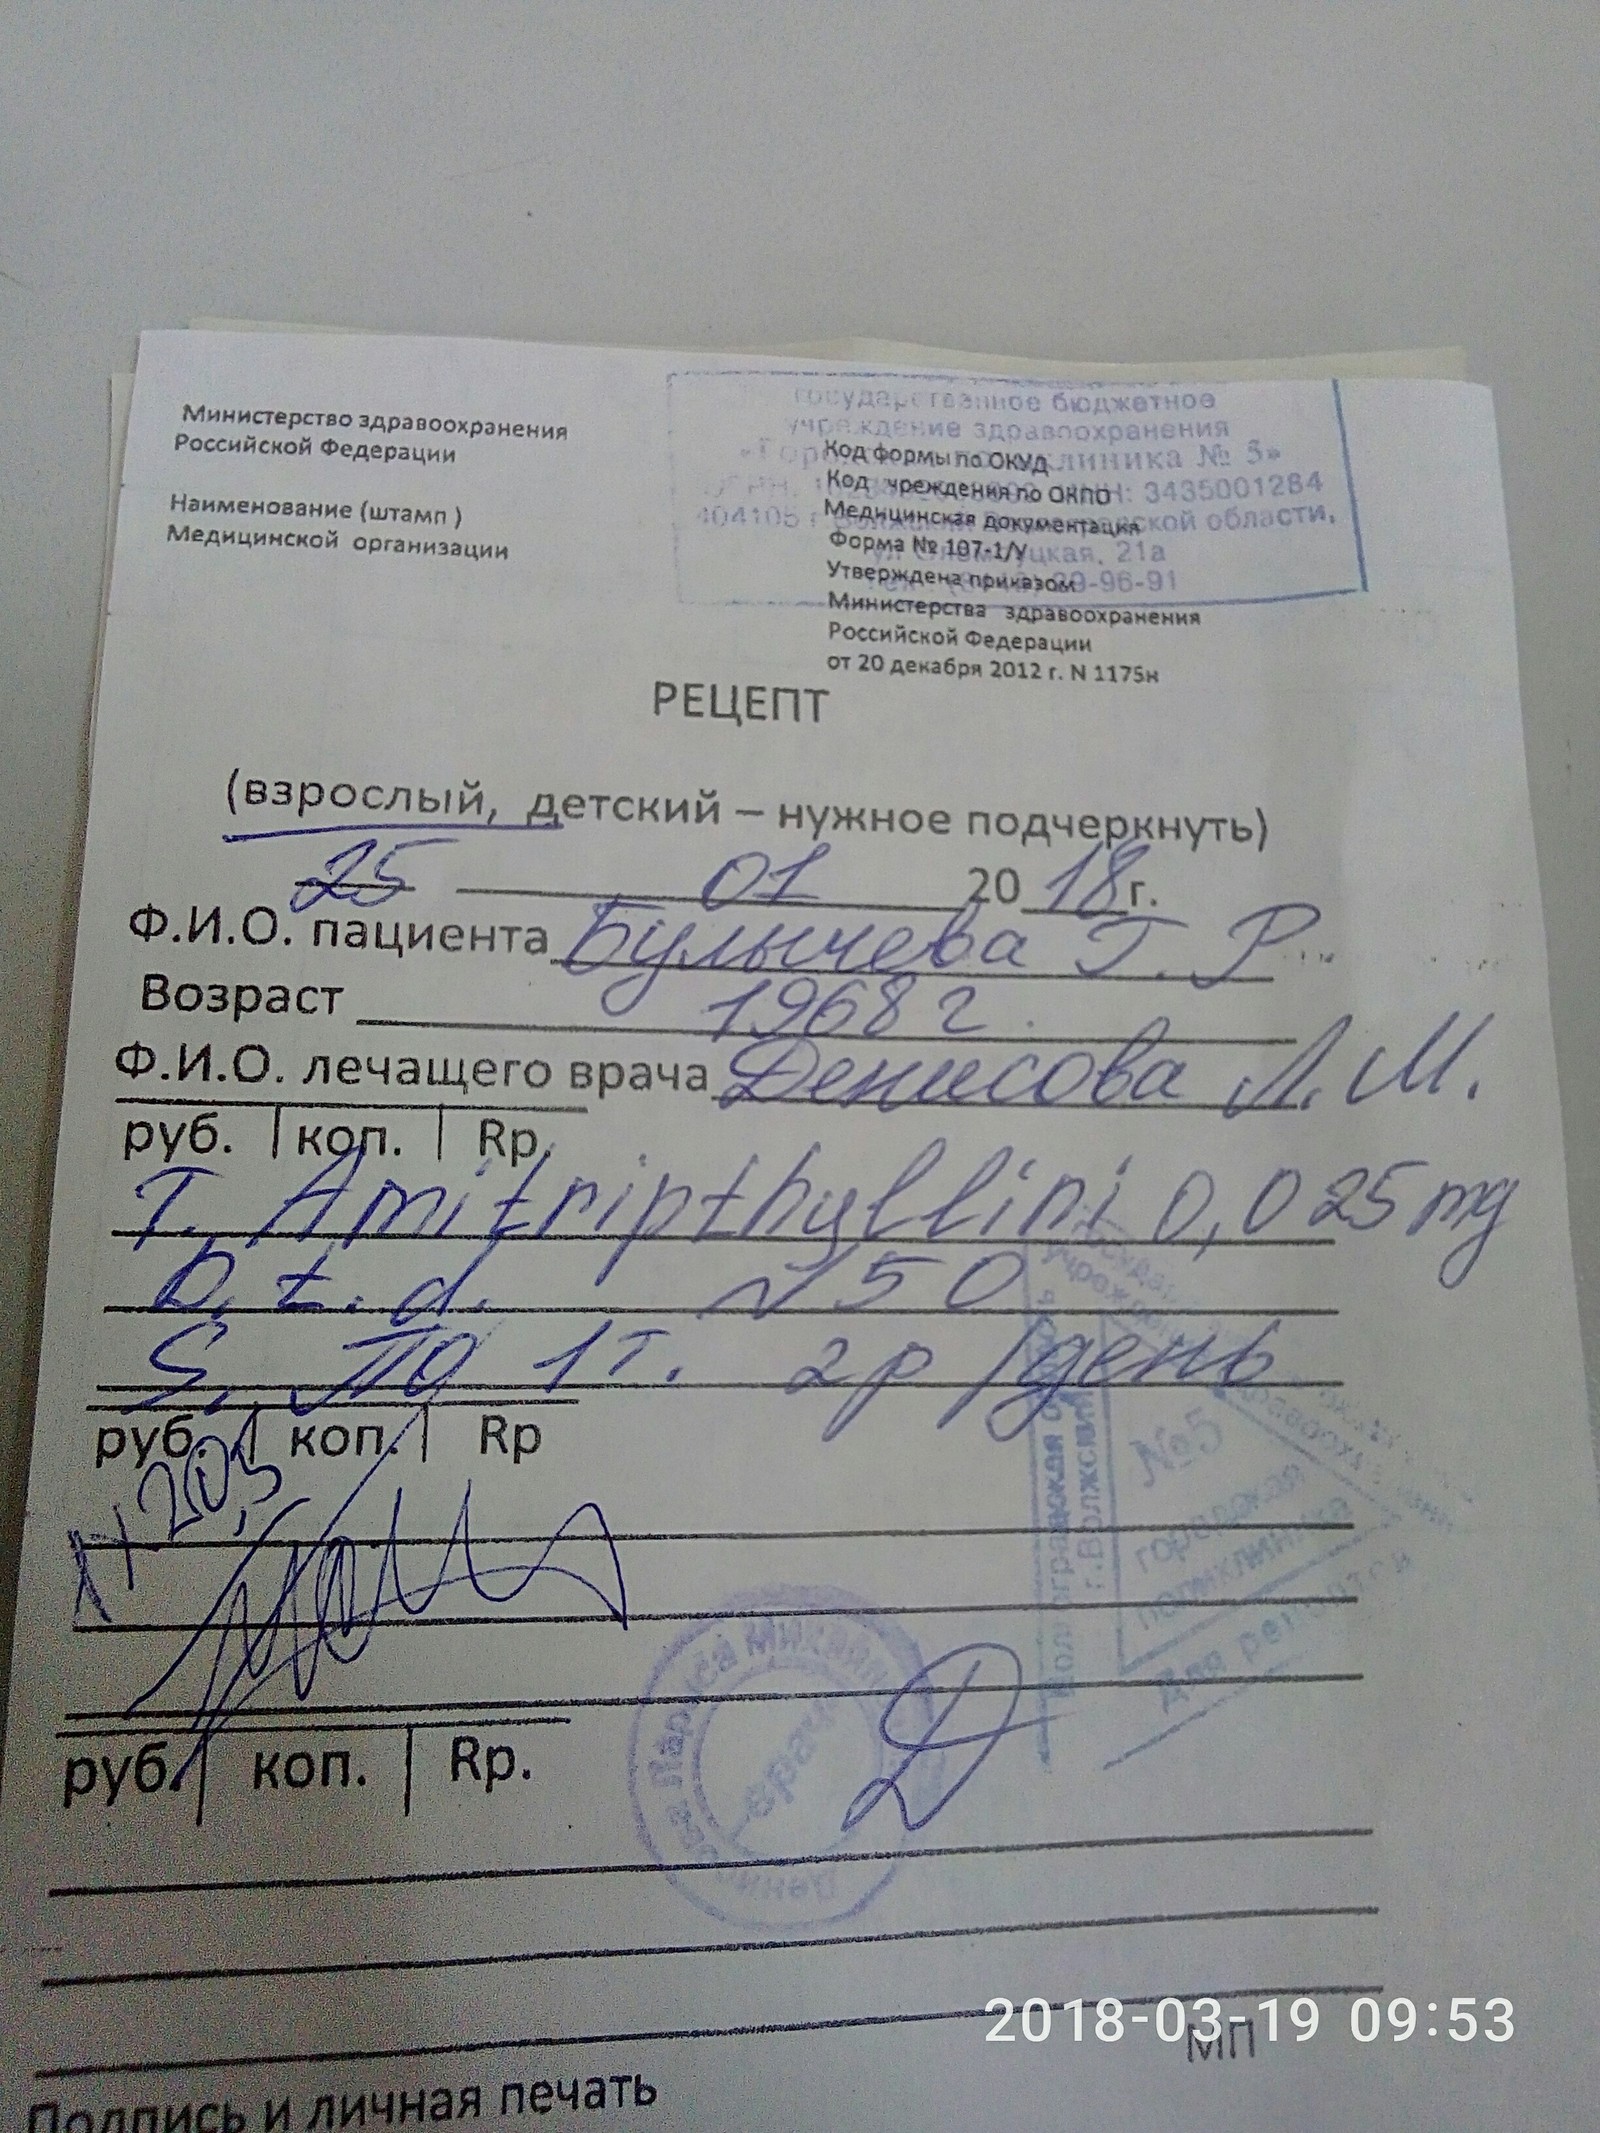 Министерство здравоохранения
Российской Федерации
Наименование (штамп )
Медицинской организации
государственное бюджетное
учреждение здравоохранения
клиника № 5»
ИНН: 3435001284
404105 г. Волжский Волгоградской области,
21а
39-96-91
Код формы по ОКУД
Код учреждения по ОКПО
Медицинская документация
Форма № 107-1/У
Утверждена приказом
Министерства здравоохранения
Российской Федерации
от 20 декабря 2012 г. N 1175н
РЕЦЕПТ
(взрослый, детский – нужное подчеркнуть)
25 01 20 18 г.
Ф.И.О. пациента Булычева Т. Р.
Возраст 1968 г.
Ф.И.О. лечащего врача Денисова Л. М.
руб. | коп. | Rp.
T. Amitripthyllini 0,025 mg
D. t. d. N 50
S. По 1 т. 2 р/день
руб. | коп. | Rp
№5
городская
поликлиника
Для рецептов
г.Волжский
Лариса Михайл
врач
руб. | коп. | Rp.
МП
Подпись и личная печать
2018-03-19 09:53